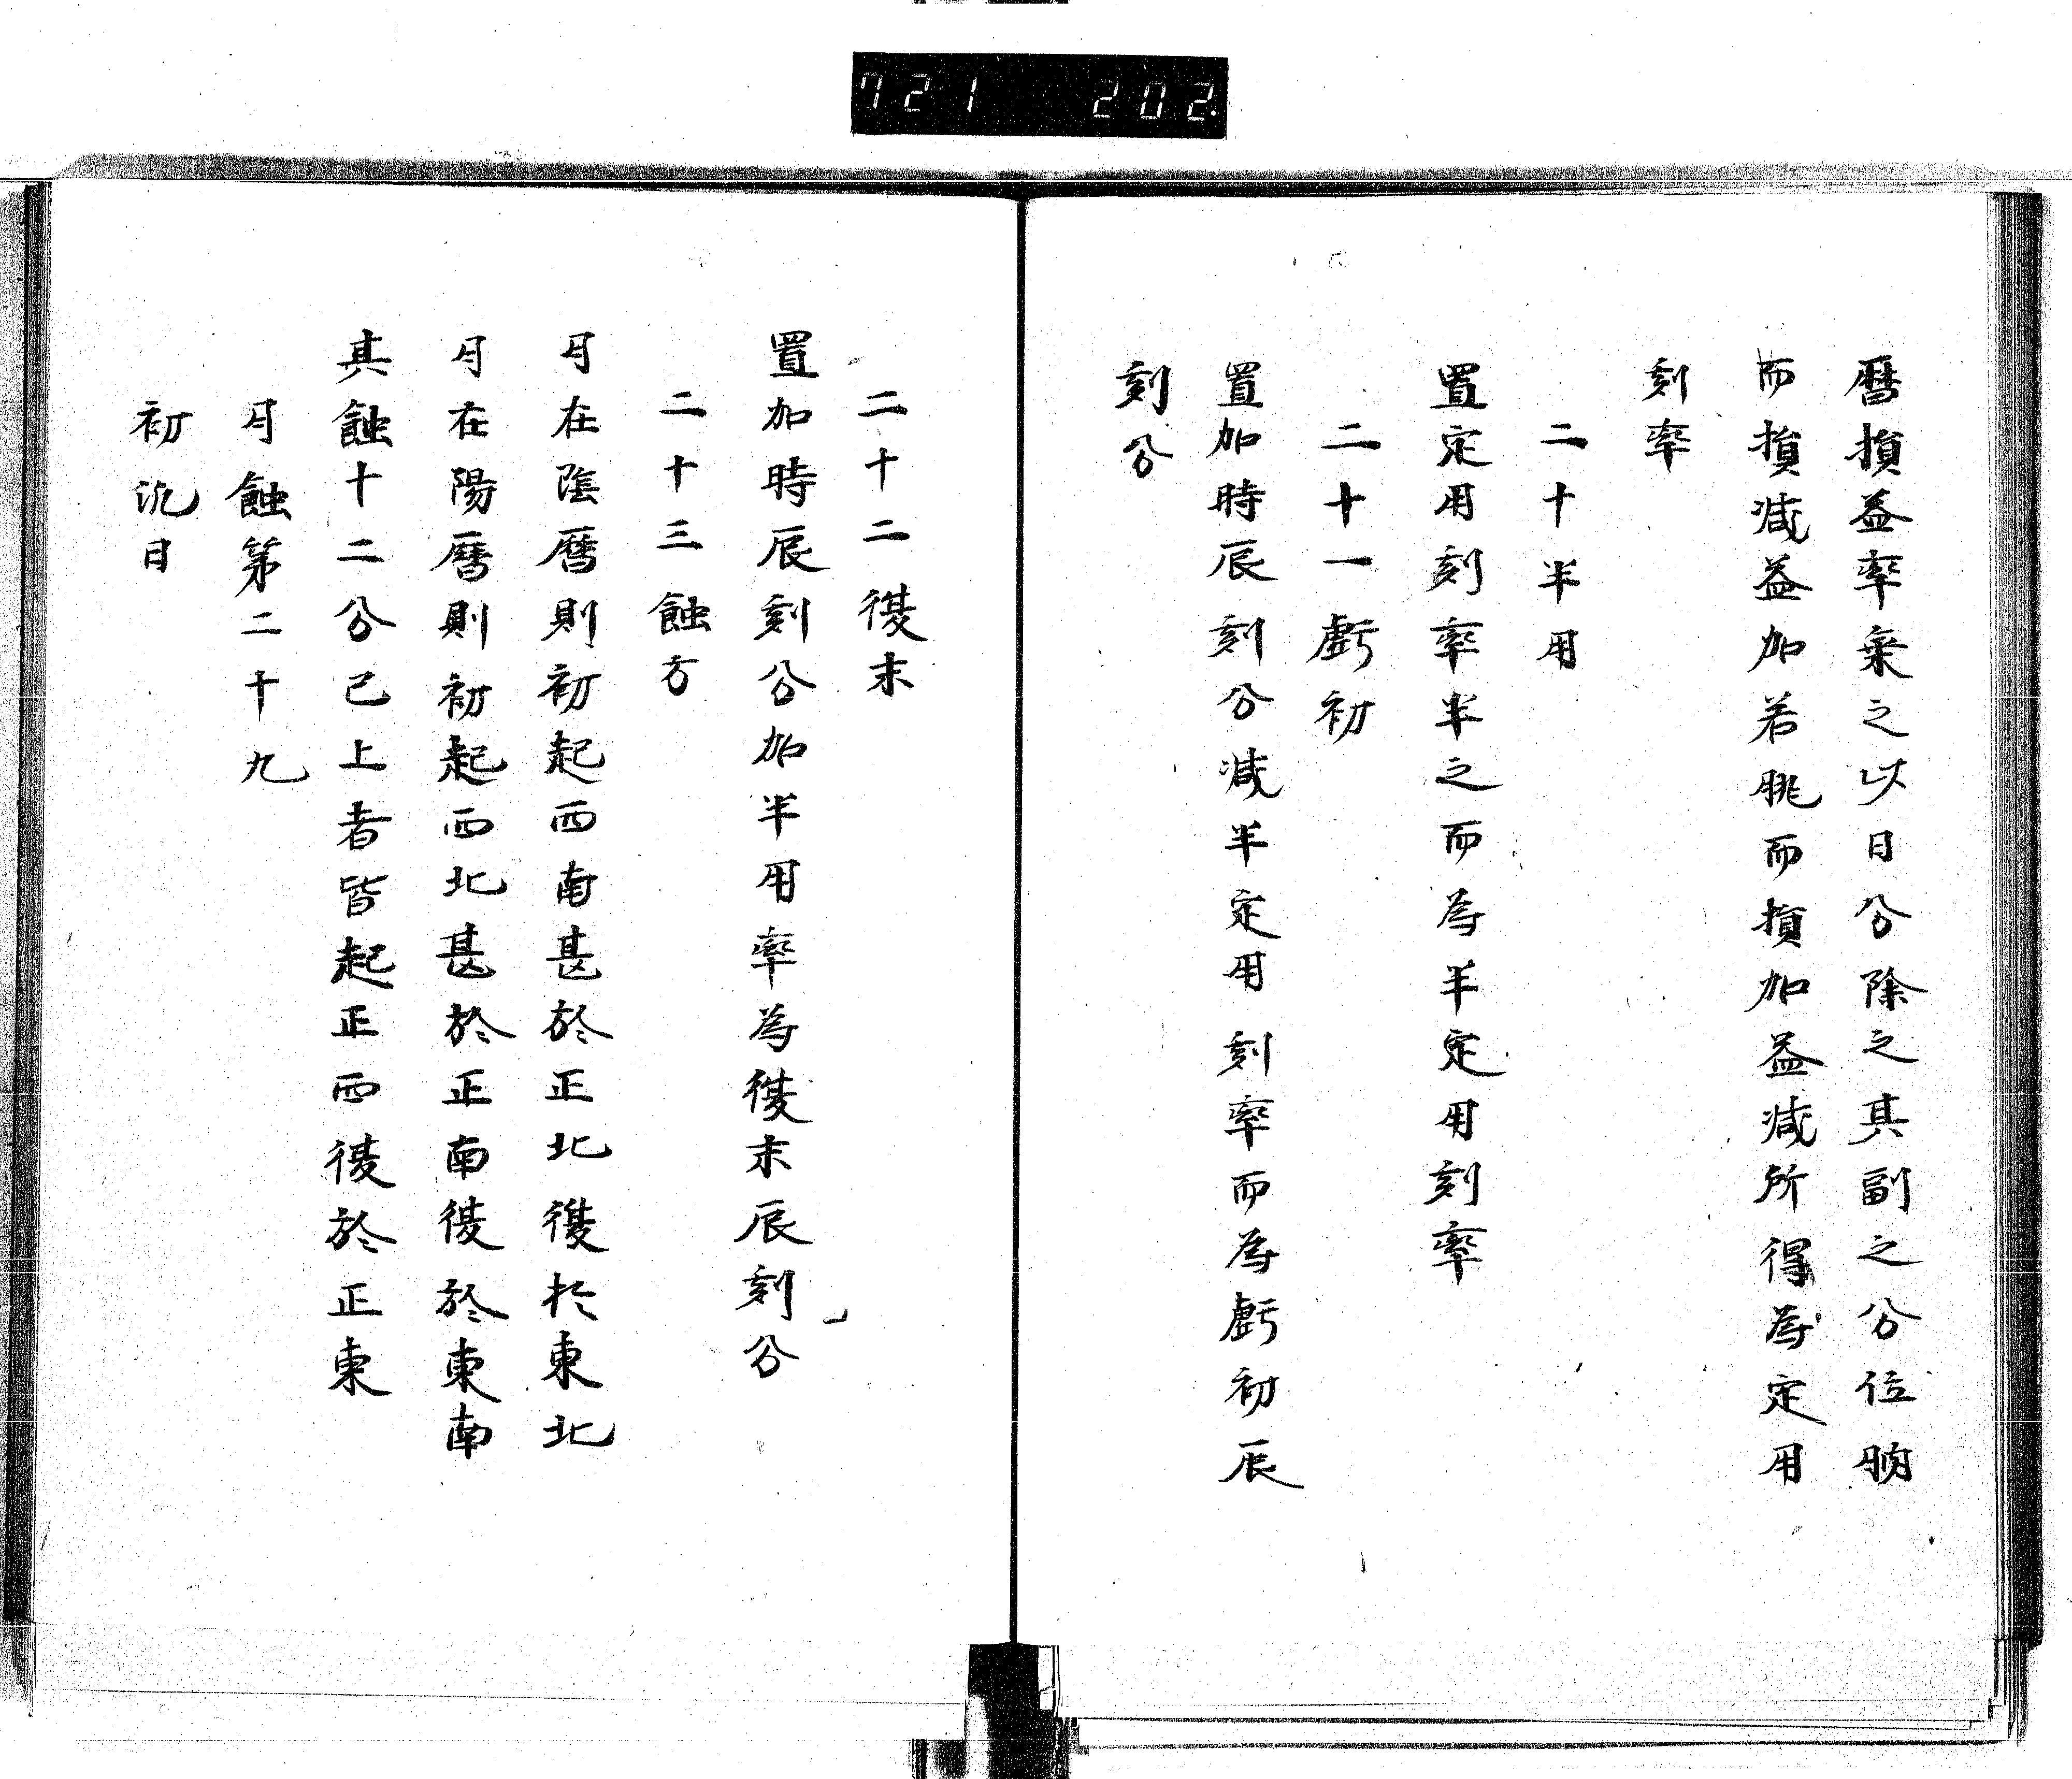 721 202
曆損益率乗之以日分除之其副之分位朒
而損減益加若朓而損加益減所得為定用
刻率
二十半用
置定用刻率半之而為半定用刻率
二十一虧初
置加時辰刻分減半定用刻率而為虧初辰
刻分
二十二復末
置加時辰刻分加半用率為復末辰刻分
二十三蝕方
月在陰曆則初起西南甚於正北復於東北
月在陽曆則初起西北甚於正南復於東南
其蝕十二分已上者皆起正西復於正東
月蝕第二十九
初汎日